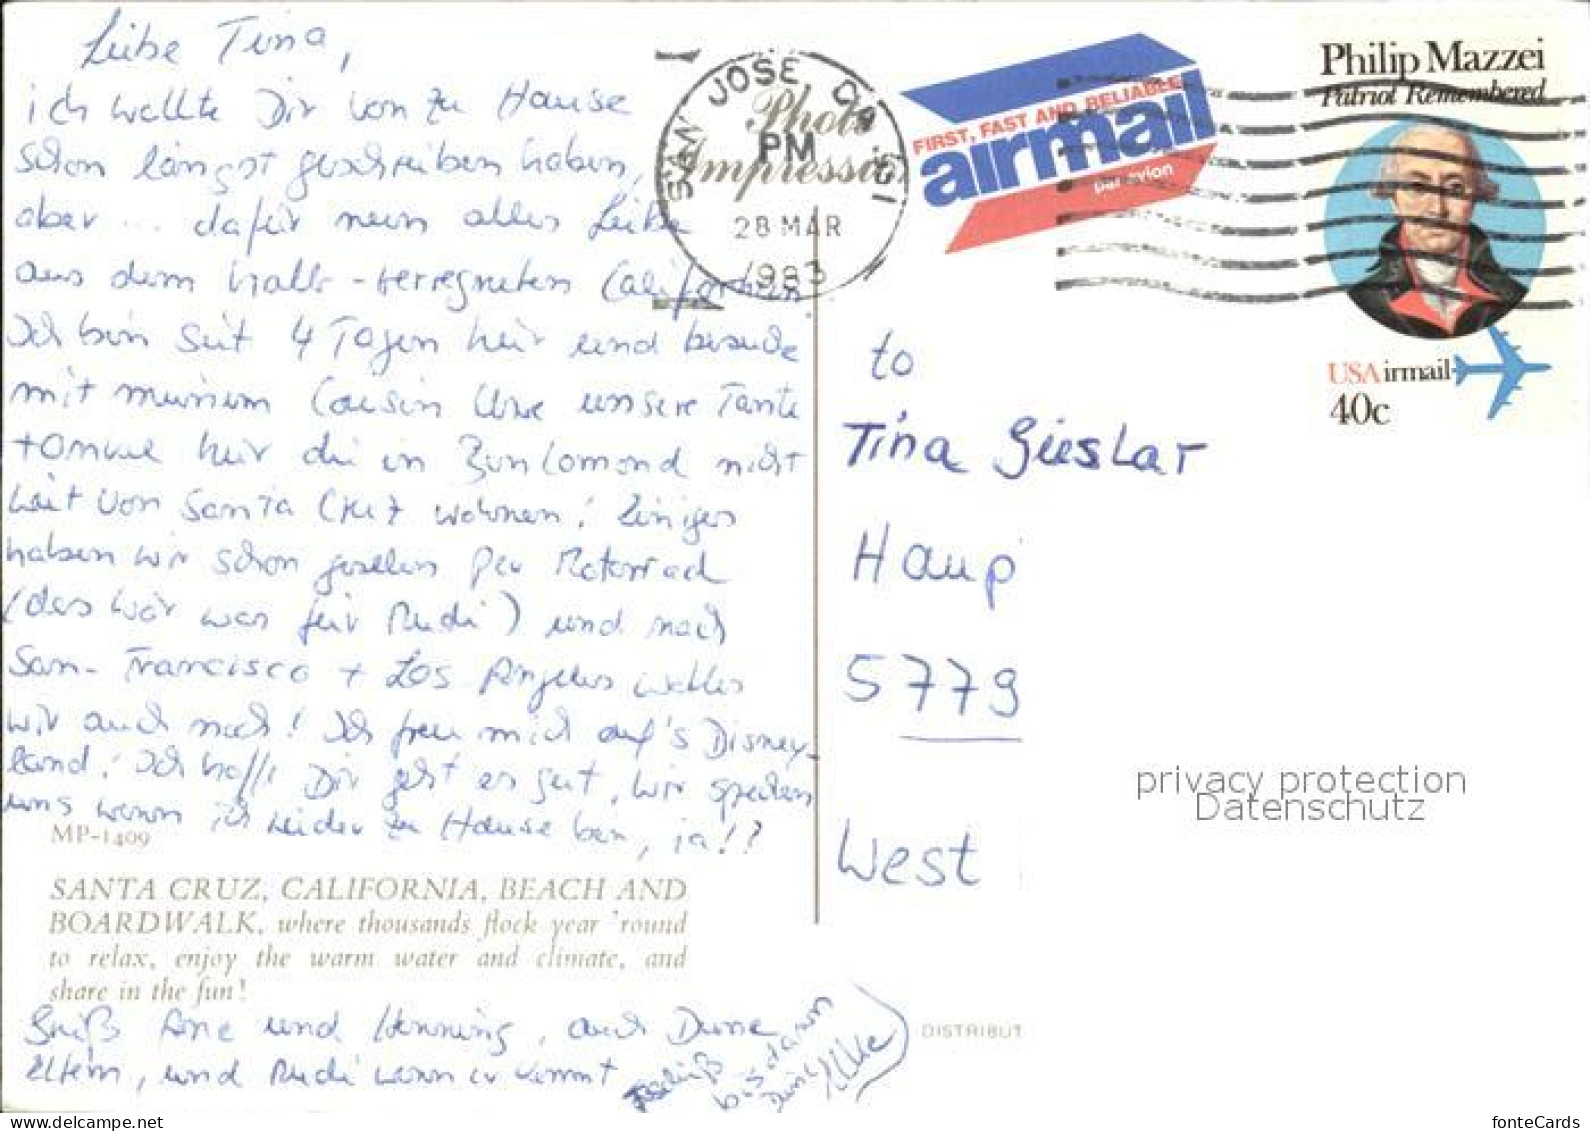 Liebe Tina,
ich wollte Dir von zu Hause
schon längst geschrieben haben,
aber ... dafür nun alles Liebe
aus dem halb-verregneten Californien
Ich bin seit 4 Tagen hier und besuche
mit meinem Cousin Uwe unsere Tante
+ Onkel hier die in Benlomond nicht
weit von Santa Cruz wohnen! Einiges
haben wir schon gesehen per Motorrad
(das wär was für Rudi) und nach
San-Francisco + Los Angeles wollen
wir auch noch! Ich freu mich auf's Disney-
land! Ich hoffe Dir geht es gut, wir sprechen
uns wenn ich wieder zu Hause bin, ja!?
MP-1409
SANTA CRUZ, CALIFORNIA, BEACH AND
BOARDWALK, where thousands flock year 'round
to relax, enjoy the warm water and climate, and
share in the fun!
Grüß Ane und Henning, auch Deine
Eltern, und Rudi wenn er kommt
Tschüß
bis dann
Deine Elke
Photo
Impressions
SAN JOSE CA 951
PM
28 MAR
1983
FIRST, FAST AND RELIABLE
airmail
par avion
Philip Mazzei
Patriot Remembered
USAirmail
40c
to
Tina Gieslar
Haup
5779
West
DISTRIBUT
privacy protection
Datenschutz
www.delcampe.net
fonteCards